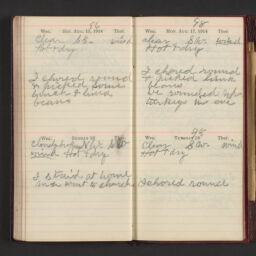 86
Wea. Sat. Aug. 15, 1914 Ther.
Clear S.E. wind
Hot & dry
I chored round
& picked some
beans
Wea. Sunday 16 Ther.
Cloudy N.W. wind Hot & dry
I staid at home
went to church
98
Wea. Mon. Aug. 17, 1914 Ther.
Clear S.W. wind
Hot & dry
I chored round
& picked some
beans
we
turkeys in eve
98
Wea. Tuesday 18 Ther.
Clear S.W. wind
Hot & dry
I chored round